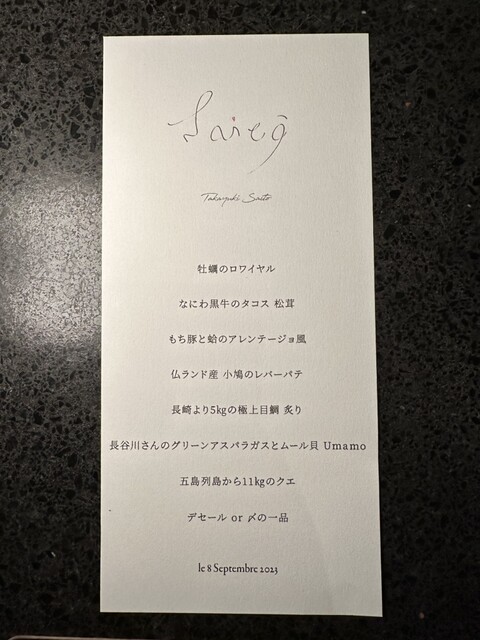 Takayuki Saito
牡蠣のロワイヤル
なにわ黒牛のタコス 松茸
もち豚と蛤のアレンテージョ風
仏ランド産 小鳩のレバーパテ
長崎より5kgの極上目鯛 炙り
長谷川さんのグリーンアスパラガスとムール貝 Umamo
五島列島から11kgのクエ
デセール or 〆の一品
le 8 Septembre 2023